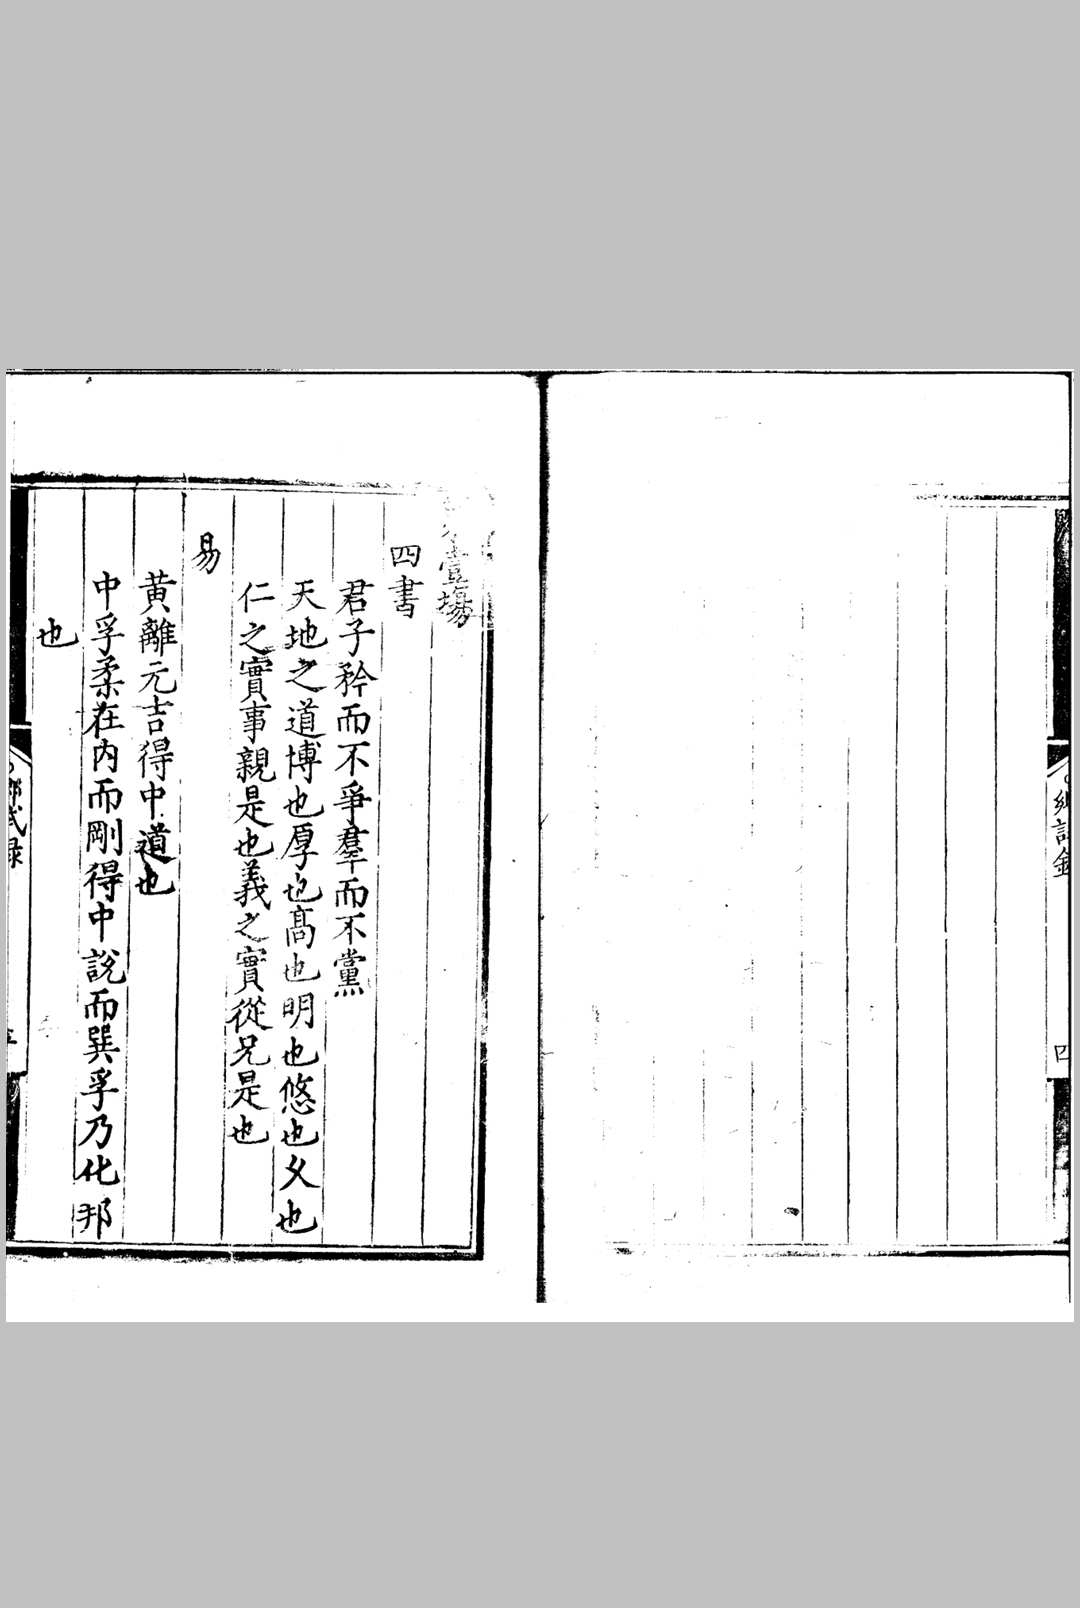 鄉試錄
四
壹場
四書
君子矜而不爭羣而不黨
天地之道博也厚也髙也明也悠也久也
仁之實事親是也義之實從兄是也
易
黃離元吉得中道也
中孚柔在内而剛得中說而巽孚乃化邦
也
鄉試録